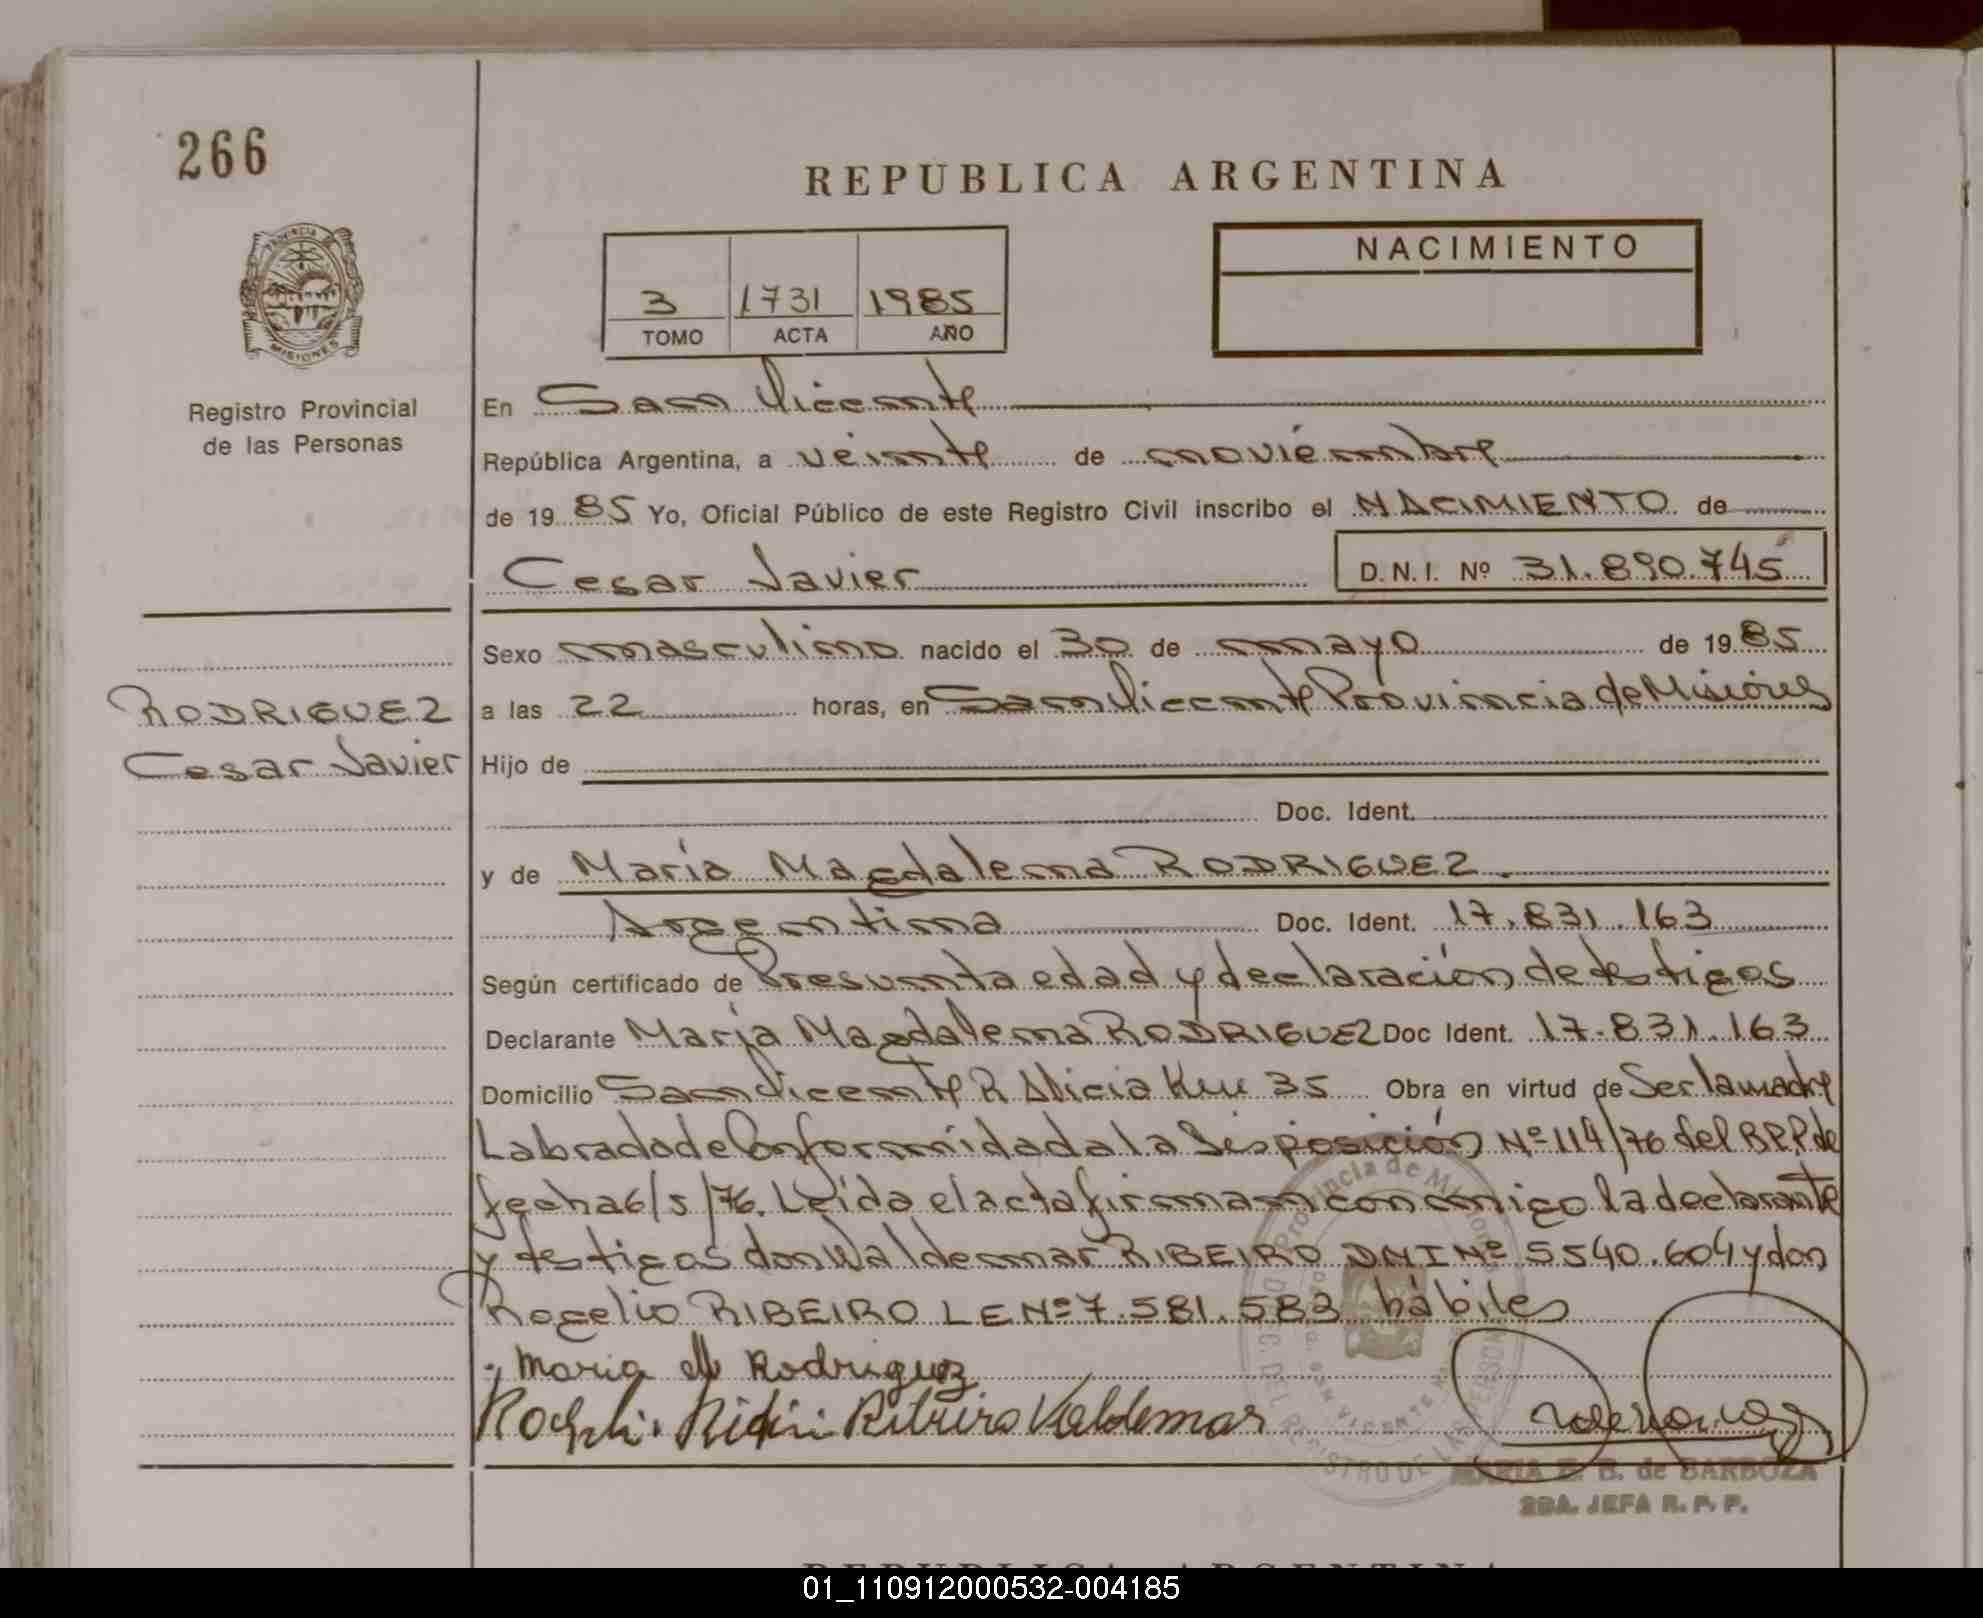 266
REPUBLICA ARGENTINA
PROVINCIA DE
MISIONES
NACIMIENTO
3 1731 1985
TOMO ACTA AÑO
Registro Provincial
de las Personas
En San Vicente
República Argentina, a veinte de noviembre
de 1985 Yo, Oficial Público de este Registro Civil inscribo el NACIMIENTO de
Cesar Javier D.N.I. Nº 31.890.745
Sexo masculino nacido el 30 de mayo de 1985
RODRIGUEZ
Cesar Javier
a las 22 horas, en San Vicente Provincia de Misiones
Hijo de
Doc. Ident.
y de Maria Magdalena RODRIGUEZ.
Argentina Doc. Ident. 17.831.163
Según certificado de Presunta edad y declaración de testigos
Declarante Maria Magdalena RODRIGUEZ Doc Ident. 17.831.163
Domicilio San Vicente R Alicia Km 35 Obra en virtud de Ser la madre
Labrado de Conformidad a la Disposición Nº 114/76 del de
fecha 6/5/76. Leída el acta firman conmigo la declarante
y testigos don Waldemar RIBEIRO DNI Nº 5540.604 y don
Rogelio RIBEIRO LE Nº 7.581.583 hábiles
Maria M Rodriguez
Ribeiro Valdemar
MARIA E. B. de BARBOZA
2DA. JEFA R. P. P.
REPUBLICA ARGENTINA
01_110912000532-004185